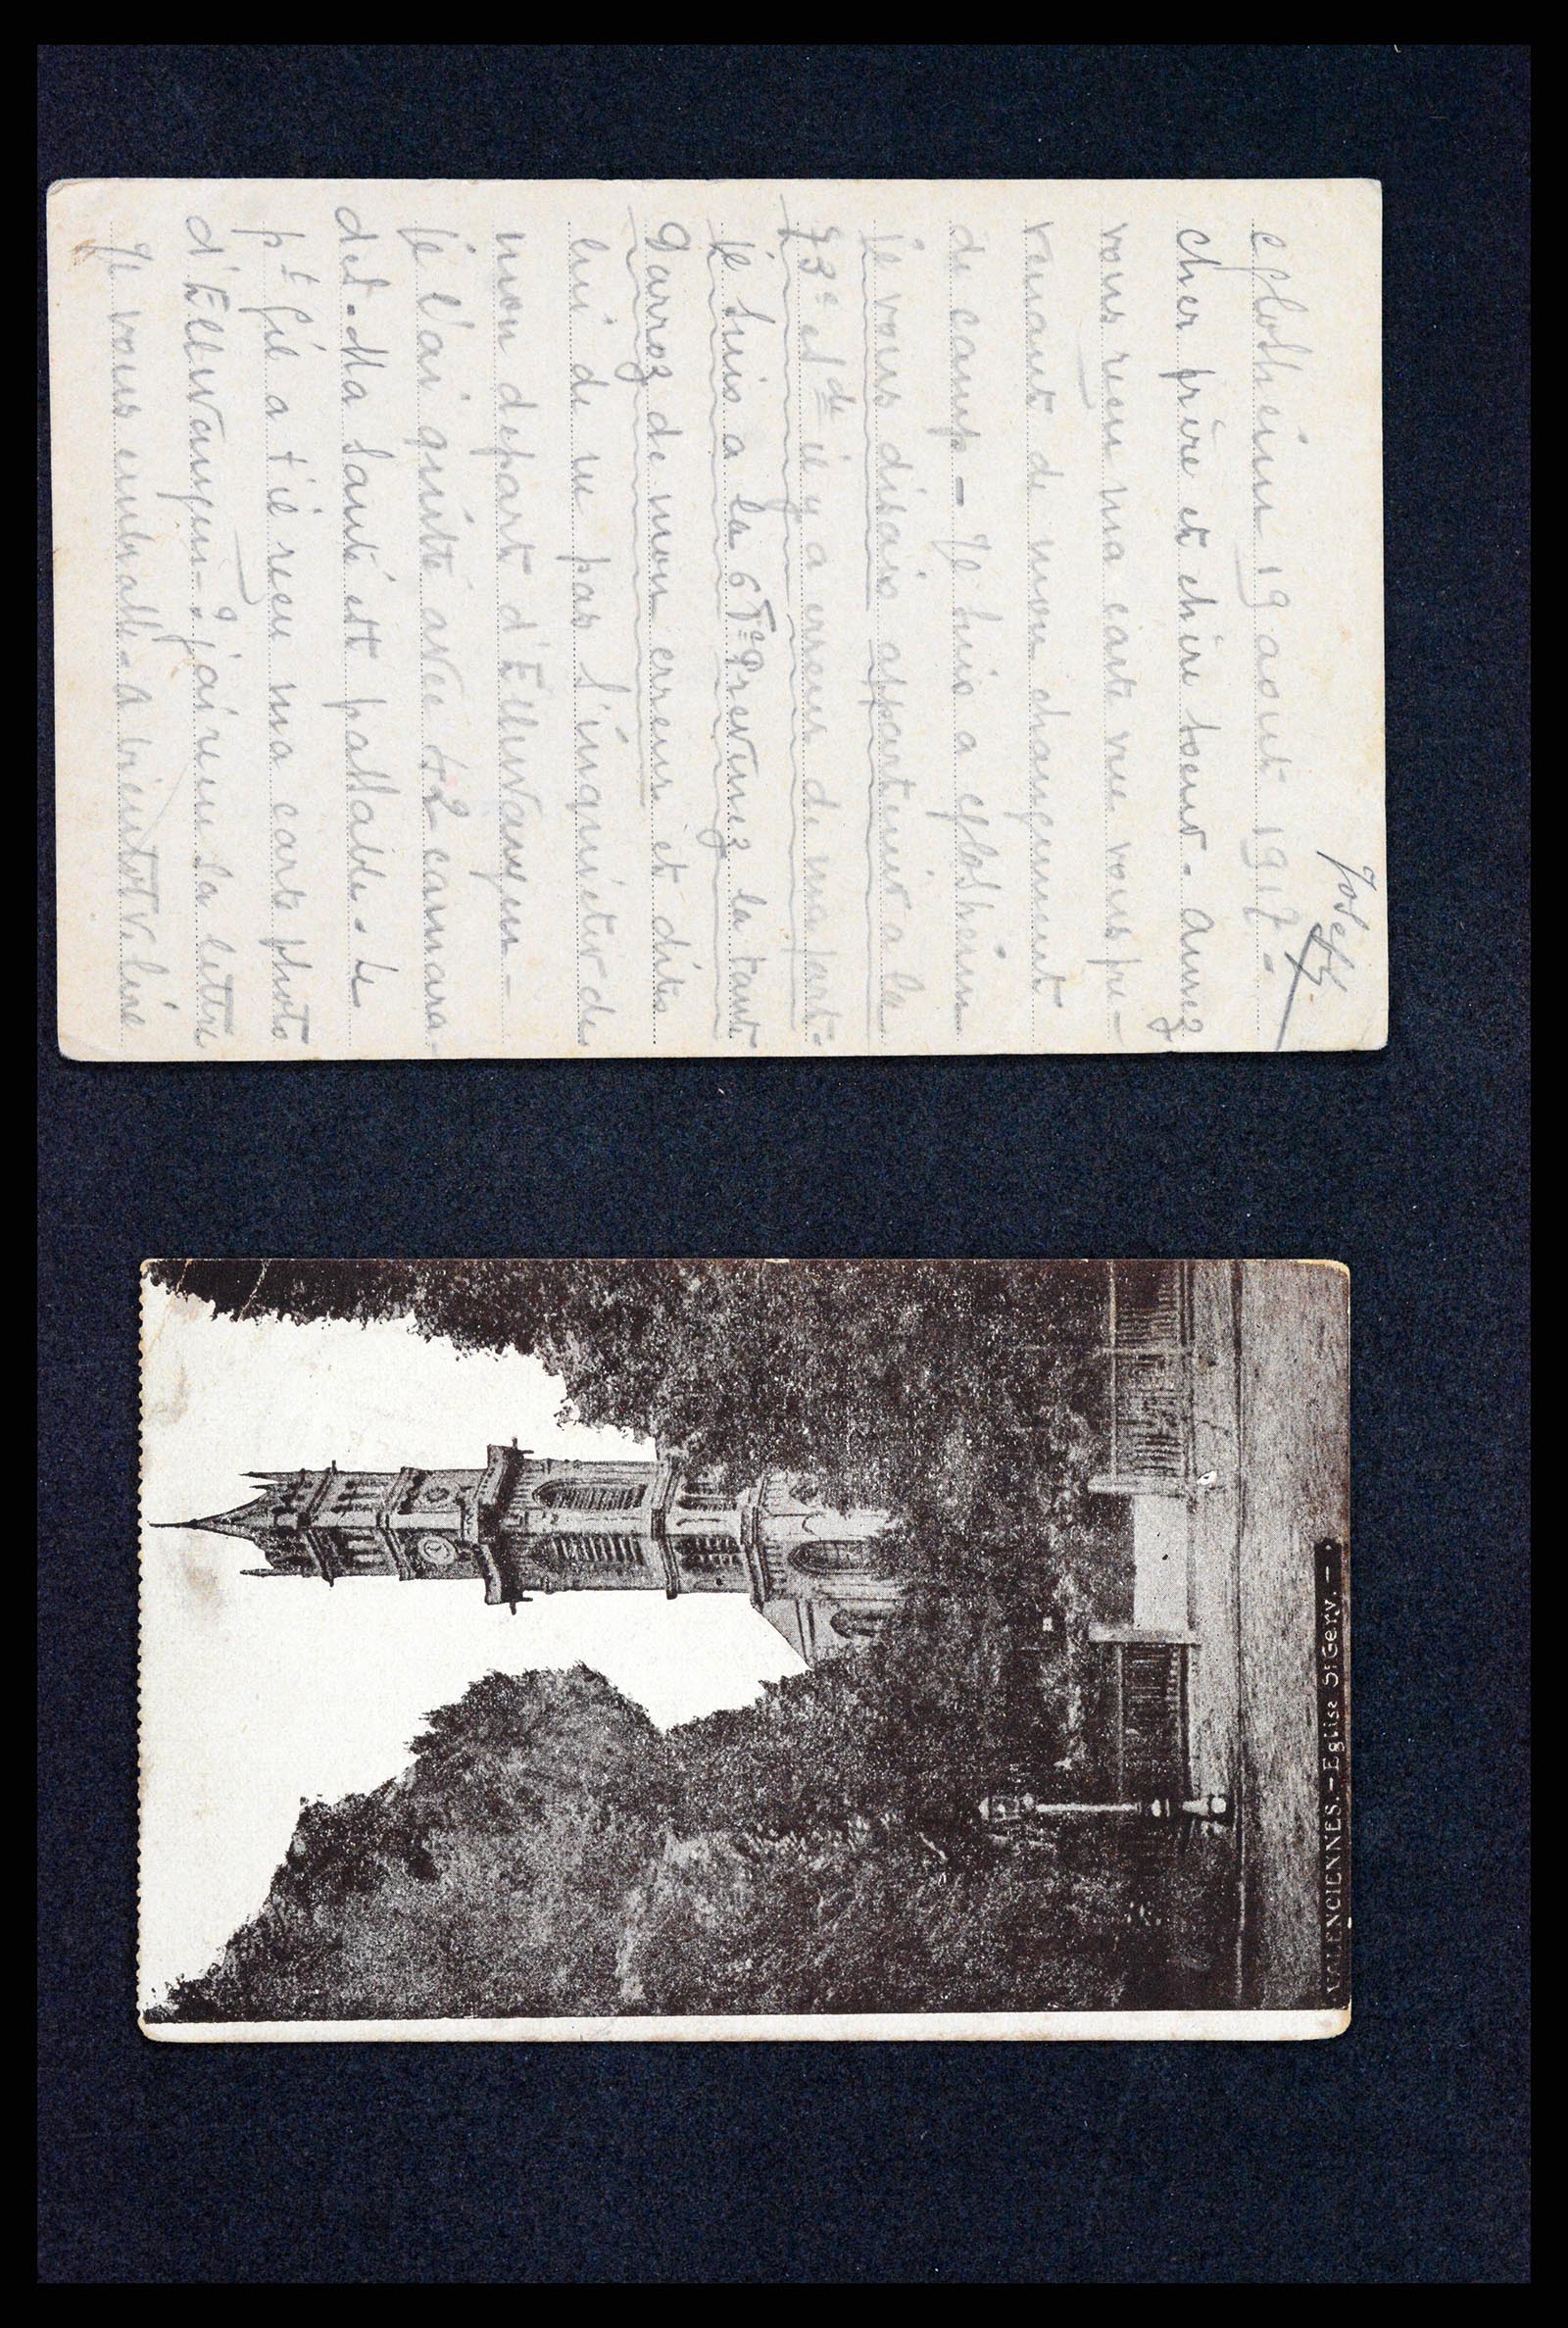 Eglosheim 19 aout 1917 -
cher frère et chère soeur - Aurez
vous reçu ma carte vue vous pré-
venant de mon changement
de camp - Je suis a eglosheim
Je vous disais appartenir a la
73e et de il y a erreur de ma part -
Je suis a la 6 Prevenez la tante
Garroz de mon erreur et dites
lui de ne pas s'inquièter de
mon depart d'Ellwangen -
Je l'ai quitté avec 42 camara-
des - Ma santé est passable - Le
pt Gil a t'il reçu ma carte photo
d'Ellwangen - ? j'ai reçu sa lettre
Je vous embrasse - A bientot v.
Joseph
VALENCIENNES. - Eglise St Gery. -